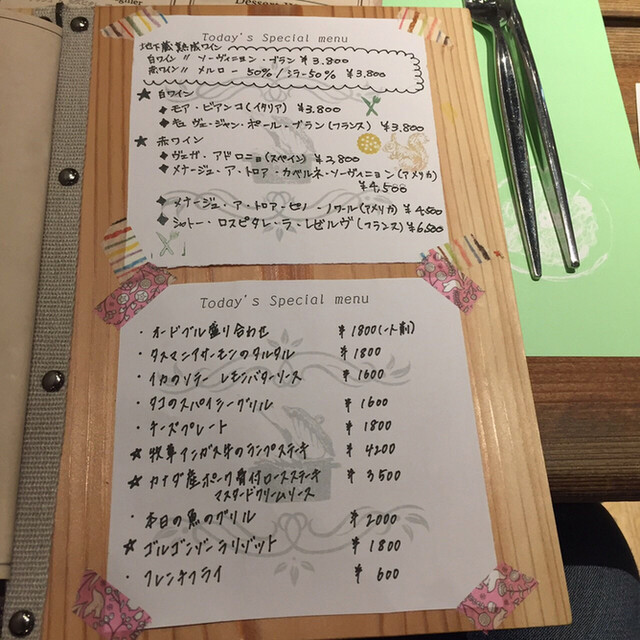 Today's Special menu
地下蔵熟成ワイン
白ワイン 〃 ソーヴィニョン・ブラン ¥3,800
赤ワイン 〃 メルロー 50% / シラー 50% ¥3,800
★ 白ワイン
◆ モア・ビアンコ (イタリア) ¥3,800
◆ キュヴェ・ジャン・ポール・ブラン (フランス) ¥3,800
★ 赤ワイン
◆ ヴェガ・アドロニョ (スペイン) ¥3,800
◆ メナージュ・ア・トロア・カベルネ・ソーヴィニョン (アメリカ)
¥4,500
◆ メナージュ・ア・トロア・ピノ・ノワール (アメリカ) ¥4,500
◆ シャトー・ロスピタレ・ラ・レゼルヴ (フランス) ¥6,500
Today's Special menu
・オードブル盛り合わせ ¥1800 (一人前)
・タスマニアサーモンのタルタル ¥1800
・イカのソテー レモンバターソース ¥1600
・タコのスパイシーグリル ¥1600
・チーズプレート ¥1800
★ 牧草アンガス牛のランプステーキ ¥4200
★ カナダ産ポーク骨付ロースステーキ ¥3500
マスタードクリームソース
・本日の魚のグリル ¥2000
★ ゴルゴンゾーラリゾット ¥1800
・フレンチフライ ¥600